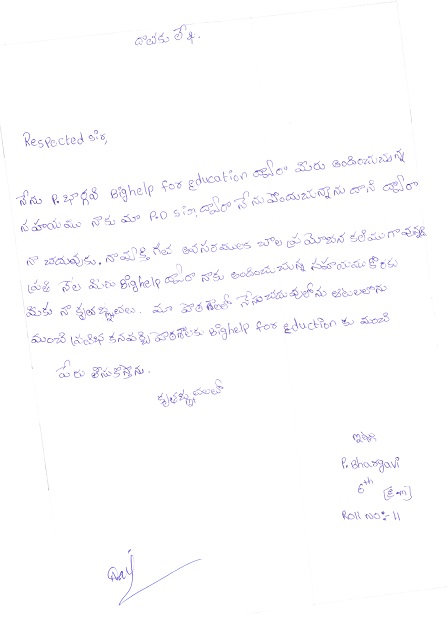 దాతకు లేఖ.
Respected sir,
నేను P. భార్గవి Bighelp for Education ద్వారా మీరు అందించుచున్న
సహాయము నాకు మా P.D sir, ద్వారా నేను పొందుచున్నాను దాని ద్వారా
నా చదువుకు. నా వ్యక్తి గత అవసరములకు చాల ప్రయోజన కరముగా వున్నది
ప్రతి నెల మీరు Bighelp ద్వారా నాకు అందించుచున్న సహాయము కొరకు
మీకు నా కృతజ్ఞతలు. మా పాఠశాలలో నేను చదువులోను ఆటలలోను
మంచి ప్రతిభ కనపరచి పాఠశాలకు Bighelp for Eduction కు మంచి
పేరు తీసుకొస్తాను.
కృతజ్ఞతలతో
ఇట్లు
P. Bhargavi
6th
Roll no:- 11